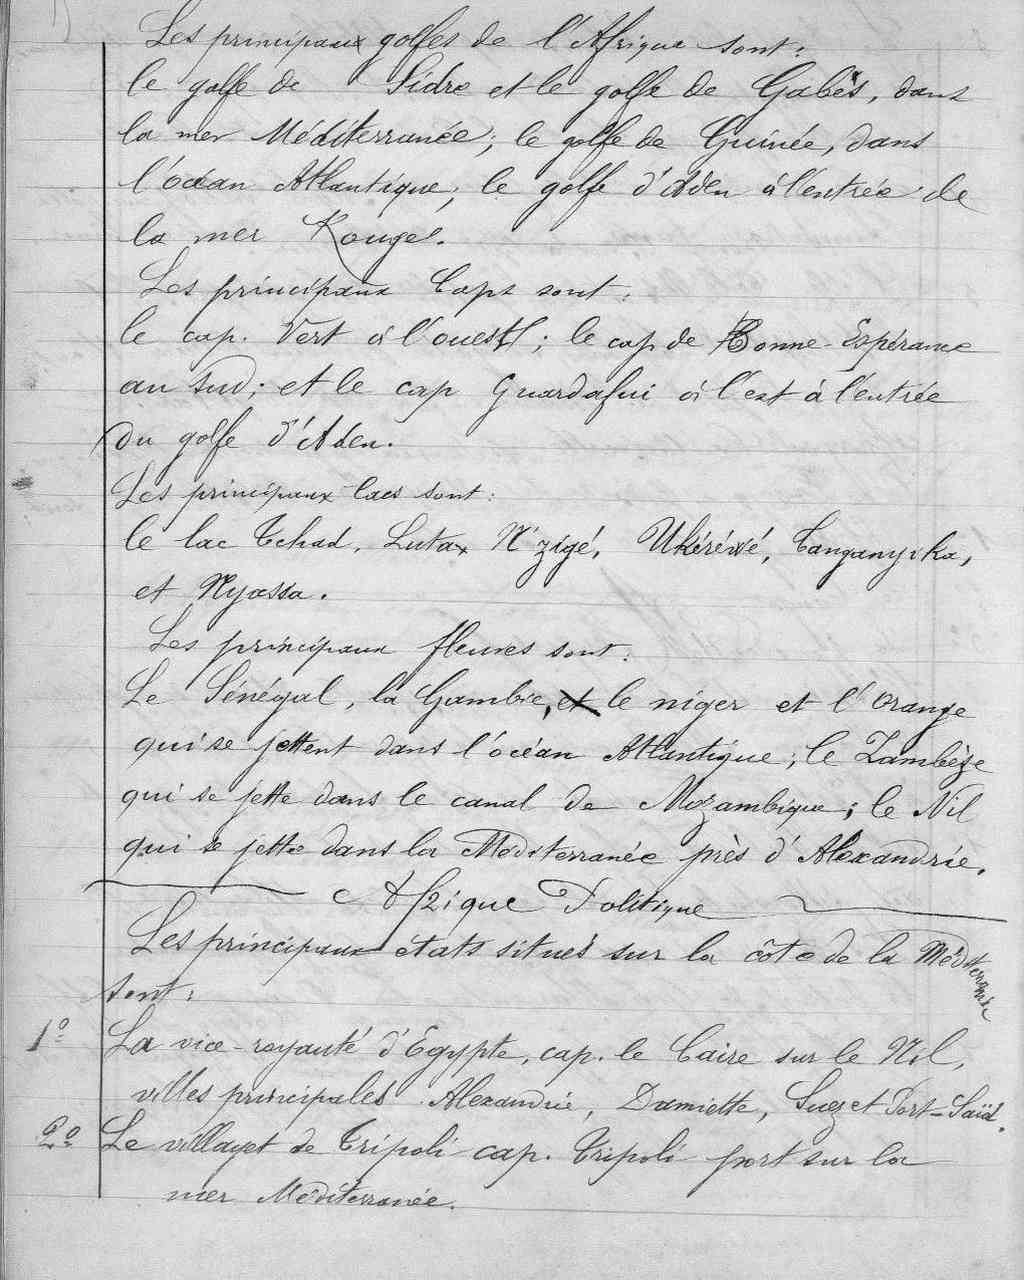 Les principaux golfes de l'Afrique sont :
le golfe de Sidre et le golfe de Gabès, dans
la mer Méditerranée ; le golfe de Guinée, dans
l'océan Atlantique, le golfe d'Aden à l'entrée de
la mer Rouge.
Les principaux Caps sont :
le cap. Vert à l'ouest ; le cap de Bonne-Espérance
au Sud ; et le cap Guardafui à l'est à l'entrée
du golfe d'Aden.
Les principaux lacs sont :
le lac Tchad, Luta N'zigé, Ukéréwé, Tanganyika,
et Nyassa.
Les principaux fleuves sont :
Le Sénégal, la Gambie, et le niger et l'Orange
qui se jettent dans l'océan Atlantique ; le Zambèze
qui se jette dans le canal de Mozambique ; le Nil
qui se jette dans la Méditerranée près d'Alexandrie.
Afrique Politique
Les principaux états situés sur la côte de la Méditerranée
sont :
1º La vice-royauté d'Egypte, cap. le Caire sur le Nil,
villes principales Alexandrie, Damiette, Suez et Port-Saïd.
2º Le villayet de Tripoli cap. Tripoli port sur la
mer Méditerranée.